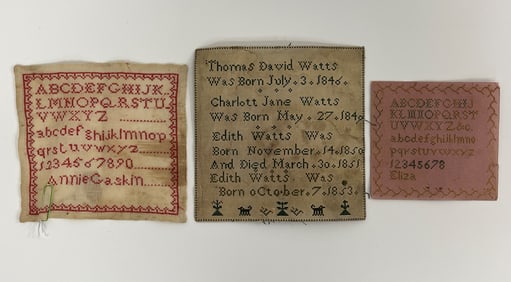 ABCDEFGHIJK
LMNOPQRSTU
VWXYZ
abcdefghijklmnop
qrstuvwxyz
1234567890
Annie Gaskin
Thomas David Watts
Was Born July.3.1846.
Charlott Jane Watts
Was Born May.27.184
Edith Watts Was
Born November.14.1850
And Died March.30.1851
Edith Watts Was
Born October.7.1853.
ABCDEFGHIJ
KLMNOPQRST
UVWXYZ&
abcdefghijklm
nopqrstuvwxyz
12345678
Eliza